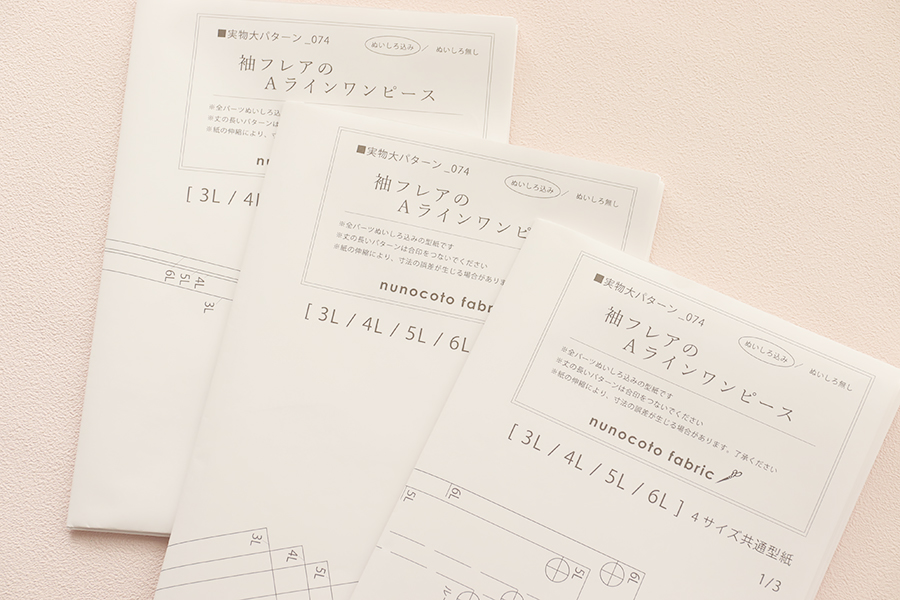 ■実物大パターン_074
ぬいしろ込み / ぬいしろ無し
袖フレアの
Aラインワンピース
※全パーツぬいしろ込
※丈の長いパターンは
※紙の伸縮により、寸
nu
[ 3L / 4L
6L
5L
4L
3L
■実物大パターン_074
ぬいしろ込み / ぬいしろ無し
袖フレアの
Aラインワンピ
※全パーツぬいしろ込みの型紙です
※丈の長いパターンは合印をつないでください
※紙の伸縮により、寸法の誤差が生じる場合があります
nunocoto fabr
[ 3L / 4L / 5L / 6L
3L
4L
5L
■実物大パターン_074
ぬいしろ込み / ぬいしろ無し
袖フレアの
Aラインワンピース
※全パーツぬいしろ込みの型紙です
※丈の長いパターンは合印をつないでください
※紙の伸縮により、寸法の誤差が生じる場合があります。了承ください
nunocoto fabric
[ 3L / 4L / 5L / 6L ] 4サイズ共通型紙
1/3
5L
6L
5L
6L